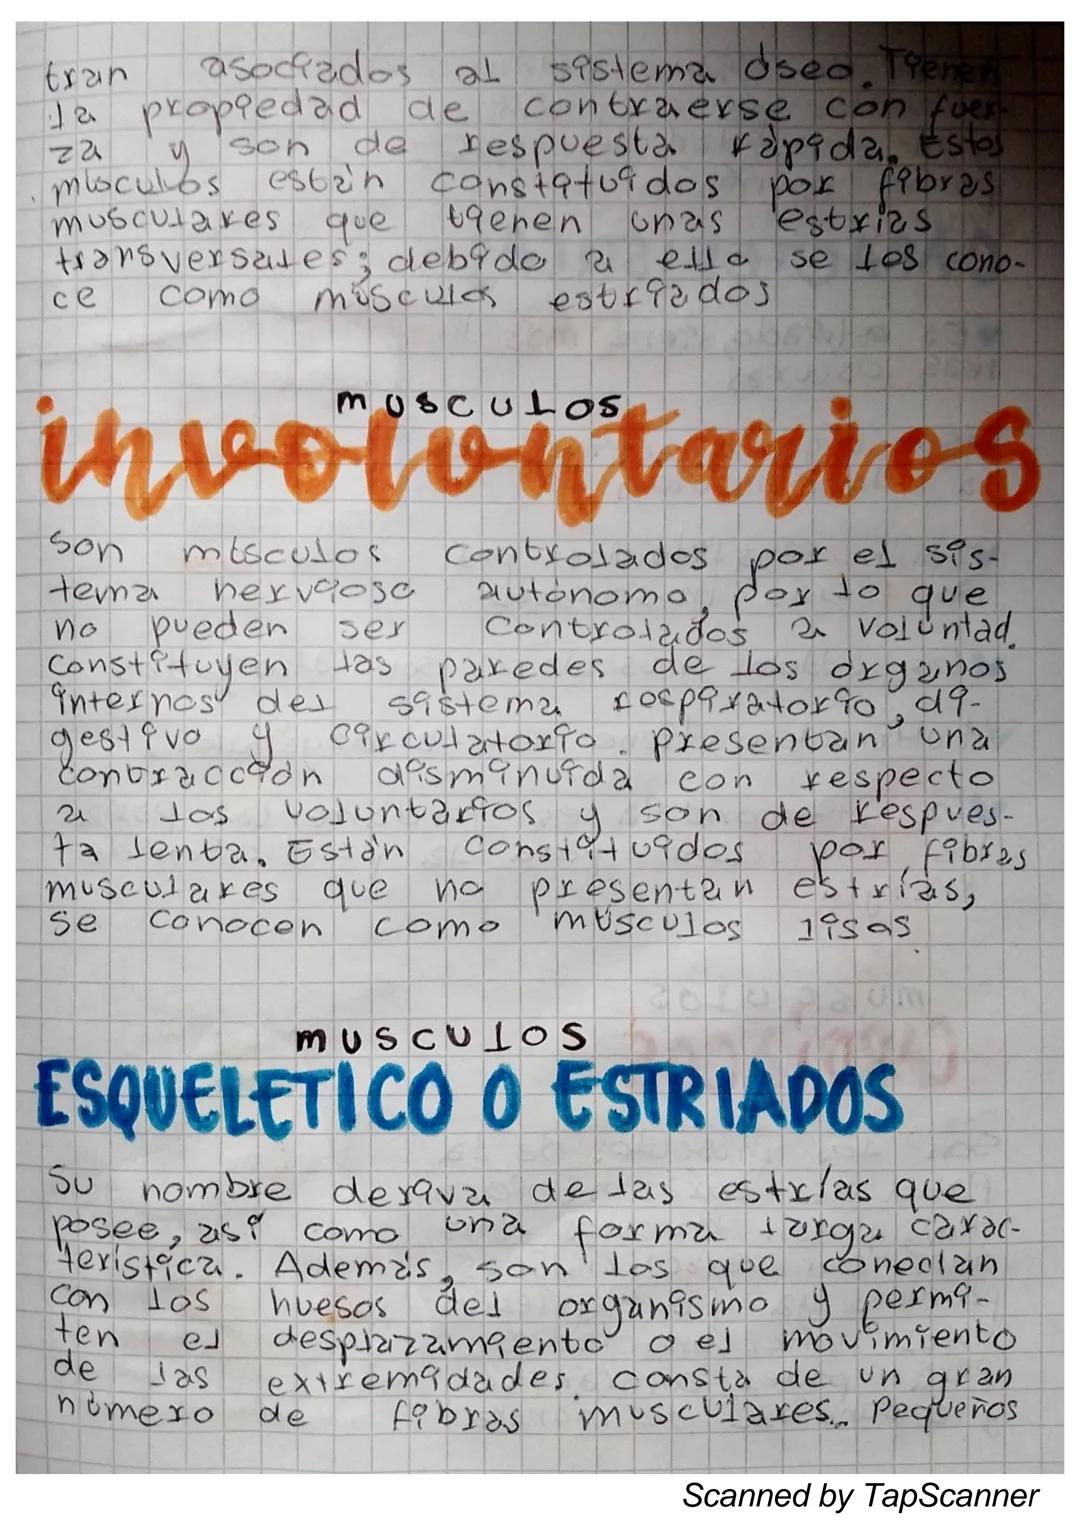 tran asociados al sistema óseo. Tienen
la propiedad de contraerse con fuer-
za y son de respuesta rápida. Estos
músculos están constituidos por fibras
musculares que tienen unas estrías
transversales; debido a ello se los cono-
ce como músculos estriados
MUSCULOS
involuntarios
Son músculos controlados por el sis-
tema nervioso autónomo, por lo que
no pueden ser controlados a voluntad.
constituyen las paredes de los órganos
internos del sistema respiratorio, di-
gestivo y circulatorio. presentan una
contracción disminuida con respecto
a los voluntarios y son de respues-
ta lenta. Están constituidos por fibras
musculares que no presentan estrías,
se conocen como músculos lisos
MUSCULOS
ESQUELETICO O ESTRIADOS
Su nombre deriva de las estrías que
posee, así como una forma larga carac-
terística. Además, son los que conectan
con los huesos del organismo y permi-
ten el desplazamiento o el movimiento
de las extremidades. consta de un gran
número de fibras musculares. Pequeños
Scanned by TapScanner